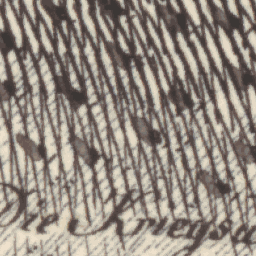 Die Kriegsa